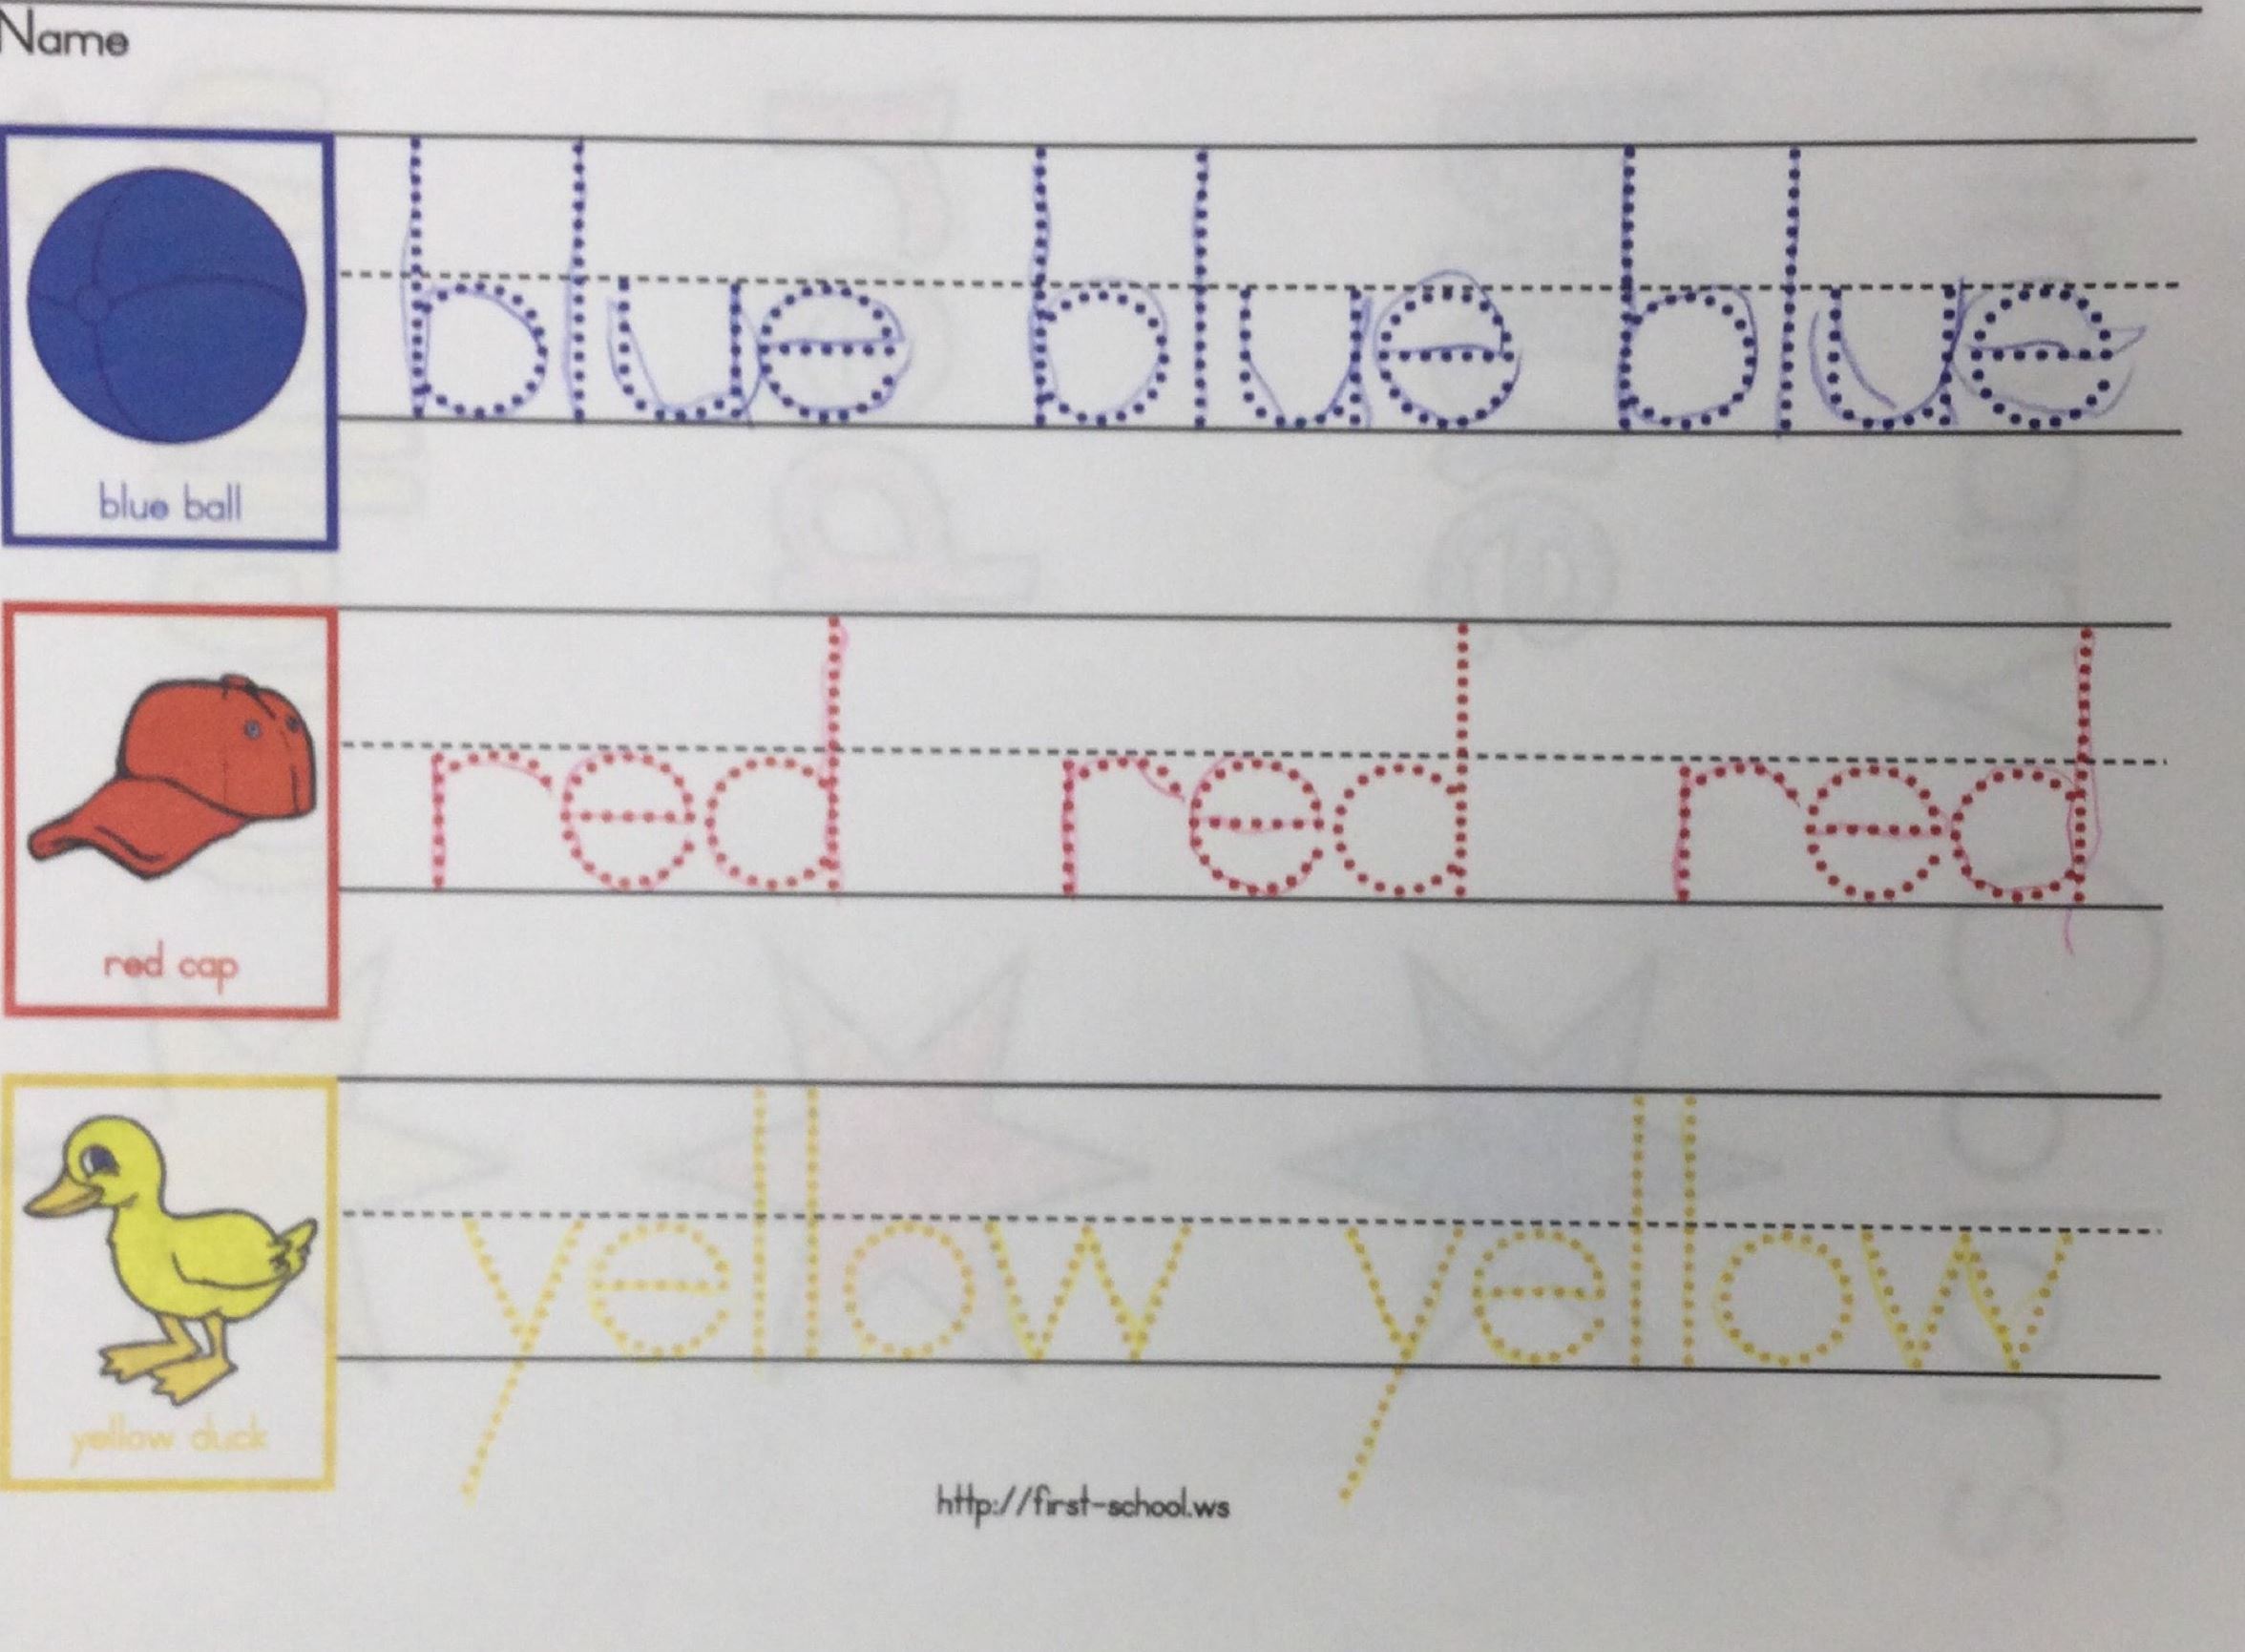 Name
blue blue blue
blue ball
red red red
red cap
yellow yellow
yellow duck
http://first-school.ws